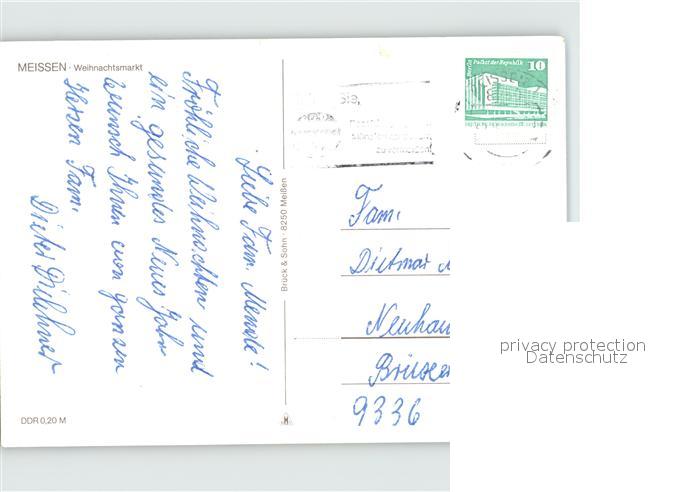 MEISSEN · Weihnachtsmarkt
Liebe Fam. Mende!
Fröhliche Weihnachten und
ein gesundes Neues Jahr
wünsch Ihnen von ganzen
Herzen Fam.
Dieter
DDR 0,20 M
Brück & Sohn · 8250 Meißen
Berlin Palast der Republik 10
Fam.
Dietmar
Neuhau
Brüse
9336
privacy protection
Datenschutz